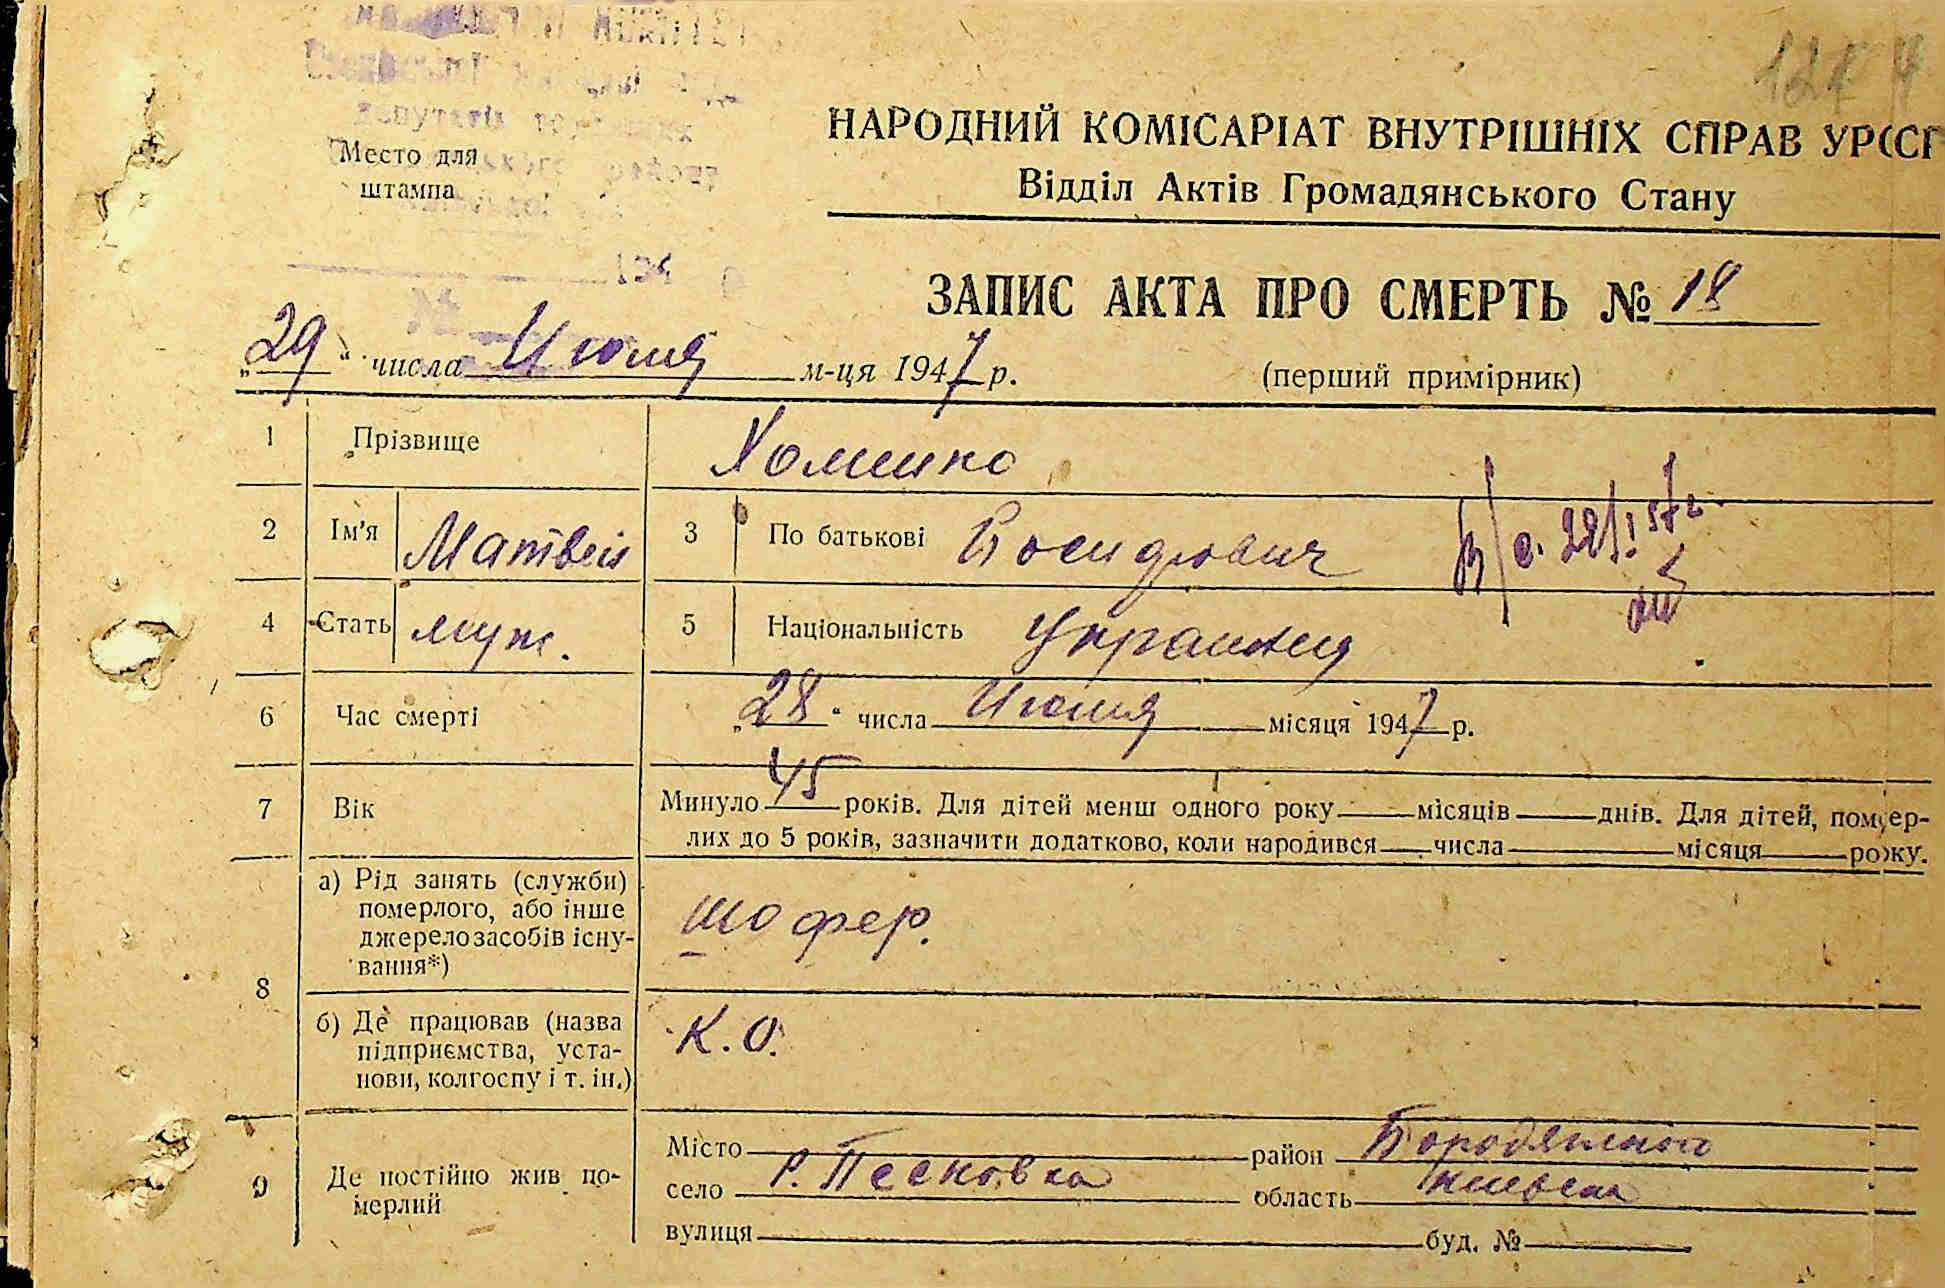 депутатів
Место для
штампа
НАРОДНИЙ КОМІСАРІАТ ВНУТРІШНІХ СПРАВ УРСР
Відділ Актів Громадянського Стану
ЗАПИС АКТА ПРО СМЕРТЬ № 18
„29“ числа Июля м-ця 1947 р.
(перший примірник)
1 Прізвище Хоменко
2 Ім'я Матвей 3 По батькові
4 Стать муж. 5 Національність
6 Час смерті „28“ числа Июля місяця 1947 р.
7 Вік Минуло 45 років. Для дітей менш одного року місяців днів. Для дітей, помер-
лих до 5 років, зазначити додатково, коли народився числа місяця року.
8 а) Рід занять (служби)
померлого, або інше
джерело засобів існу-
вання*)
шофер.
б) Де працював (назва
підприємства, уста-
нови, колгоспу і т. ін.)
К.О.
9 Де постійно жив по-
мерлий
Місто район
село Р. Песковка область
вулиця буд. №